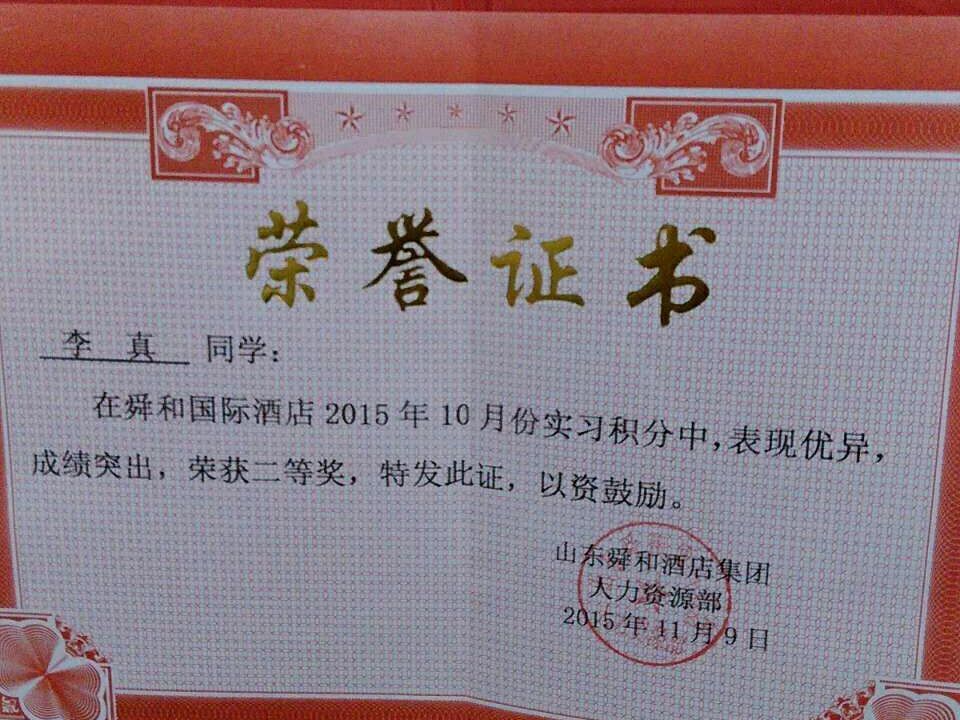 荣誉证书
李真 同学:
在舜和国际酒店2015年10月份实习积分中,表现优异,
成绩突出,荣获二等奖,特发此证,以资鼓励。
山东舜和酒店集团
人力资源部
2015年11月9日